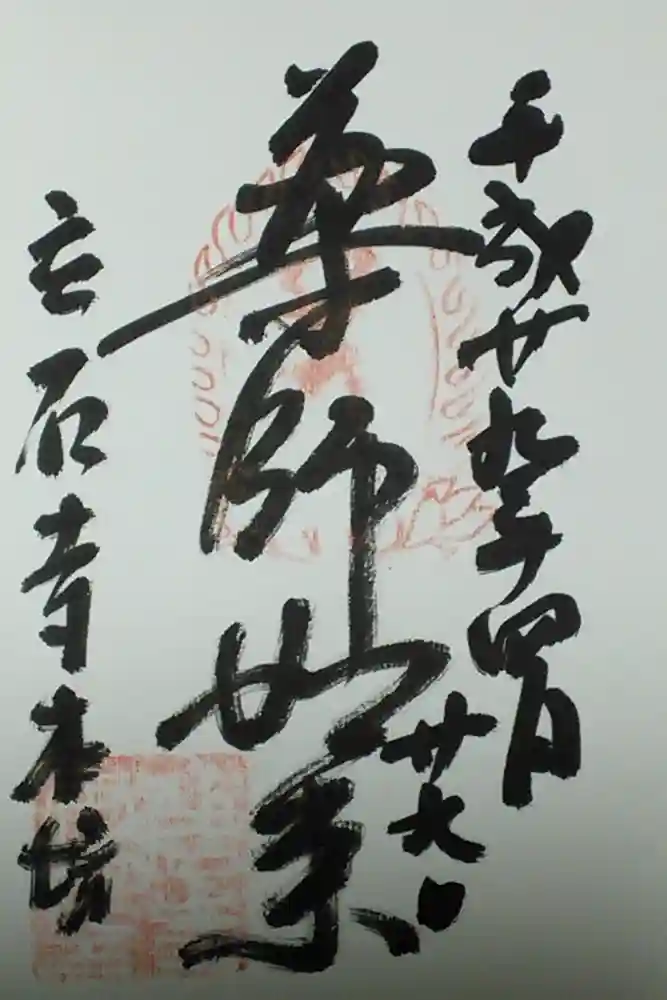 平成廿九年四月廿六日
薬師如来
立石寺本坊